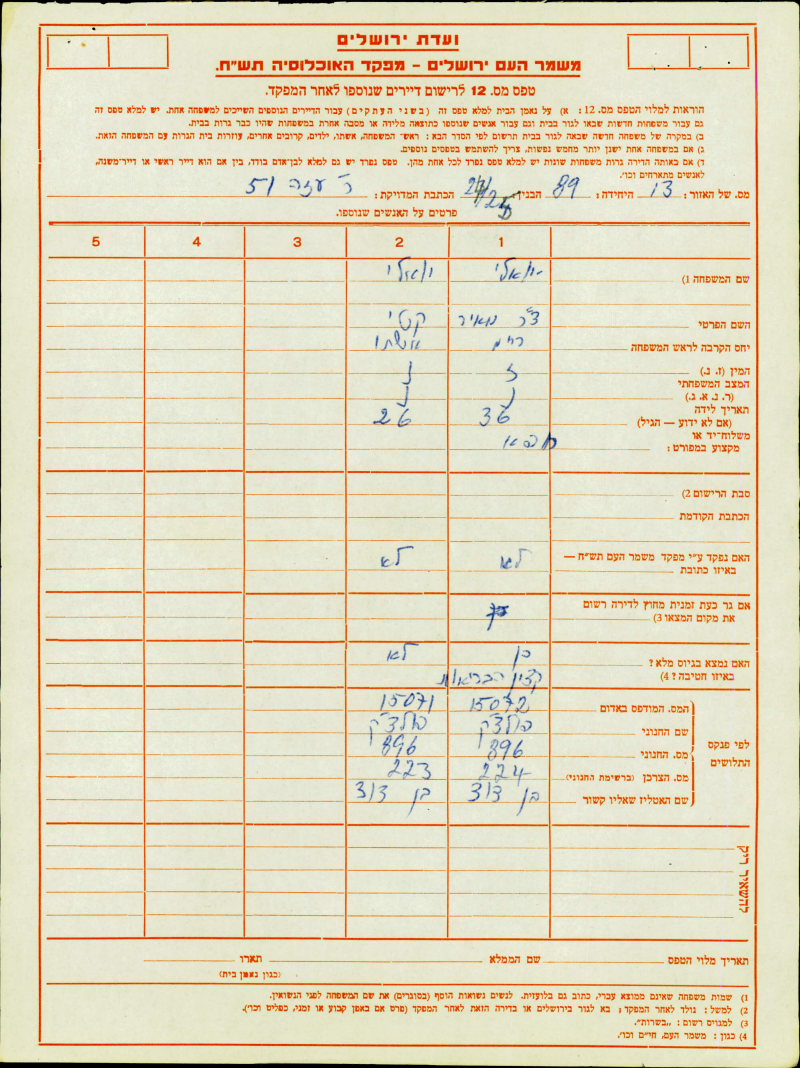 ועדת ירושלים
משמר העם ירושלים – מפקד האוכלוסיה תש״ח.
טפס מס. 12 לרישום דיירים שנוספו לאחר המפקד.
הוראות למלוי הטפס מס. 12: א) על נאמן הבית למלא טפס זה (בשני העתקים) עבור הדיירים הנוספים השייכים למשפחה אחת. יש למלא טפס זה
גם עבור משפחות חדשות שבאו לגור בבית וגם עבור אנשים שנוספו כתוצאה מלידה או מסבה אחרת במשפחות שהיו כבר גרות בבית.
ב) במקרה של משפחה חדשה שבאה לגור בבית תרשום לפי הסדר הבא: ראש המשפחה, אשתו, ילדים, קרובים אחרים, עוזרות בית הגרות עם המשפחה הזאת.
ג) אם במשפחה אחת ישנן יותר מחמש נפשות, צריך להשתמש בטפסים נוספים.
ד) אם באותה הדירה גרות משפחות שונות יש למלא טפס נפרד לכל אחת מהן. טפס נפרד יש גם למלא לבן־אדם בודד, בין אם הוא דייר ראשי או דייר־משנה,
לאנשים מתארחים וכו׳.
מס. של האזור: 13 היחידה: 89 הבנין הכתבת המדויקת: ר׳ עזה 51
פרטים על האנשים שנוספו.
1 2 3 4 5
שם המשפחה (1
השם הפרטי ד״ר מאיר קטי
יחס הקרבה לראש המשפחה אשתו
המין (ז. נ.) ז נ
המצב המשפחתי
(ר. נ. א. ג.) נ נ
תאריך לידה
(אם לא ידוע — הגיל) 36 26
משלוח־יד או
מקצוע במפורט: רופא
סבת הרישום (2
הכתבת הקודמת
האם נפקד ע״י מפקד משמר העם תש״ח —
באיזו כתובת לא לא
אם גר כעת זמנית מחוץ לדירה רשום
את מקום המצאו (3
האם נמצא בגיוס מלא? כן לא
באיזו חטיבה? (4 קצין הבריאות
לפי פנקס התלושים
המס. המודפס באדום 15072 15071
שם החנוני פולצ׳ק פולצ׳ק
מס. החנוני 896 896
מס. הצרכן (ברשימת החנוני) 224 223
שם האטליז שאליו קשור בן דוד בן דוד
להשאיר ריק
תאריך מלוי הטפס שם הממלא תארו
(כגון נאמן בית)
1) שמות משפחה שאינם ממוצא עברי, כתוב גם בלועזית. לנשים נשואות הוסף (בסוגרים) את שם המשפחה לפני הנשואין.
2) למשל: נולד לאחר המפקד; בא לגור בירושלים או בדירה הזאת לאחר המפקד (פרט אם באפן קבוע או זמני, כפליט וכו׳).
3) למגויס רשום: „בשרות״.
4) כגון: משמר העם, חי״ם וכו׳.